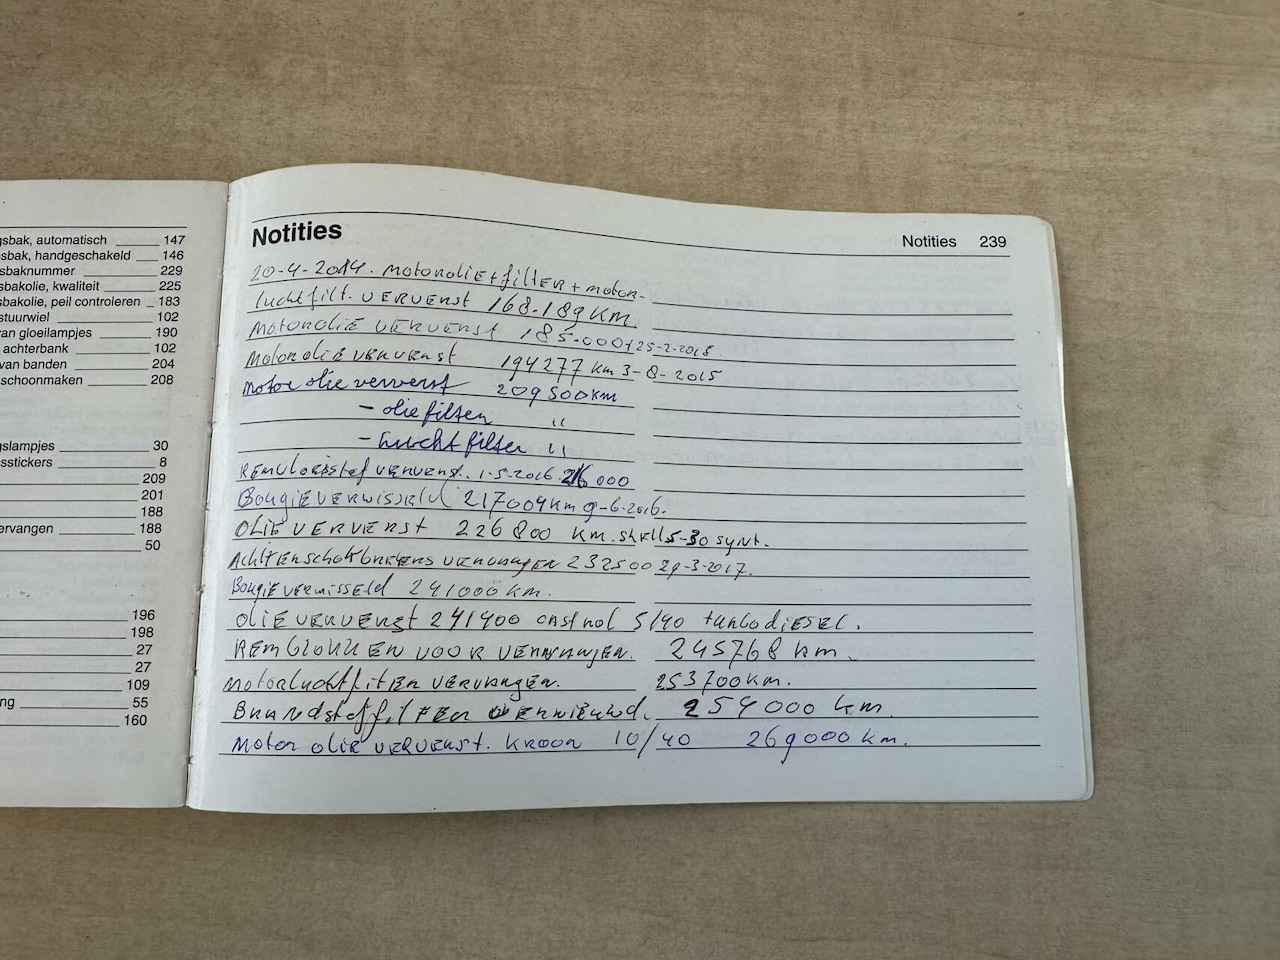 gsbak, automatisch 147
sbak, handgeschakeld 146
sbaknummer 229
sbakolie, kwaliteit 225
sbakolie, peil controleren 183
stuurwiel 102
van gloeilampjes 190
achterbank 102
van banden 204
schoonmaken 208
gslampjes 30
sstickers 8
209
201
188
ervangen 188
50
196
198
27
27
109
ng 55
160
Notities
Notities 239
20-4-2014. motorolie+filter + motor-
luchtfilt. ververst 168.189 km.
motorolie ververst 185.000 25-2-2015
motorolie ververst 194277 km 3-8-2015
motor olie ververst 209500km
- oliefilter "
- luchtfilter "
Remvloeistof ververst. 1-5-2016. 216 000
Bougie verwisseld 217004km 9-6-2016.
Olie ververst 226800 km. shell 5-30 synt.
Achterschokbrekers vervangen 232500 29-3-2017.
Bougie verwisseld 241000 km.
olie ververst 241400 castrol 5/40 turbodiesel.
Remblokken voor vervangen. 245768 km.
Motorluchtfilter vervangen. 253700km.
Brandstoffilter vernieuwd. 254000 km.
Motor olie ververst. Kroon 10/40 269000 km.